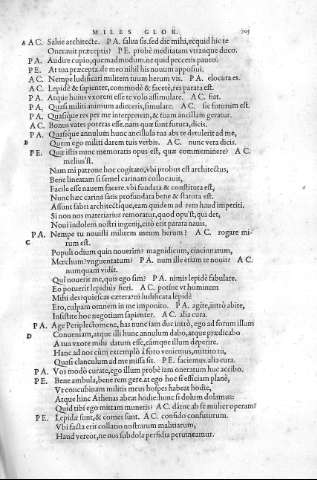 MILES GLOR. 203
A AC. Salue architecte. PA. salua sis. sed dic mihi, ecquid hic te
Onerauit præceptis? PE. probè meditatam vtranque duco.
PA. Audire cupio, quemadmodum, ne quid peccetis paueo.
PE. At tua præcepta de meo nihil his nouum apposiui.
AC. Nempe ludificari militem tuum herum vis. PA. elocuta es.
AC. Lepidè & sapienter, commodè & facetè, res parata est.
PA. Atque huius vxorem esse te volo assimulare. AC. fiet.
PA. Quasi militi animum adieceris, simulare. AC. sic futurum est.
PA. Quasique ea res per me interpretem, & tuam ancillam geratur.
AC. Bonus vates poteras esse, nam quæ sunt futura, dicis.
PA. Quasique annulum hunc ancillula tua abs te detulerit ad me,
B Quem ego militi darem tuis verbis. AC. vera dicis.
PE. Quid istis nunc memoratis opus est, quæ commeminere? AC.
melius'st.
Nam mi patrone hoc cogitato, vbi probus est architectus,
Bene lineatam si semel carinam collocauit,
Facile esse nauem facere, vbi fundata & constituta est,
Nunc hæc carina satis profundata bene & statuta est.
Assunt fabri architectique, eam quidem ad rem haud imperiti.
Si non nos materiarius remoratur, quod opu'st, qui det,
Noui indolem nostri ingenii, cito erit parata nauis.
PA. Nempe tu nouisti militem meum herum? AC. rogare mirum
C est.
Populi odium quin nouerim? magnidicum, cincinnatum,
Mœchum? vnguentatum? PA. num ille etiam te nouit? AC.
numquam vidit.
Qui nouerit me, quis ego sim? PA. nimis lepidè fabulare.
Eo potuerit lepidius fieri. AC. potin' vt hominem
Mihi des quiescas cæterarum? ni ludificata lepidè
Ero, culpam omnem in me imponito. PA. agite, intrò abite,
Insistite hoc negotium sapienter. AC. alia cura.
PA. Age Periplectomene, has nunc iam duc intrò, ego ad forum illum
D Conueniam, atque illi hunc annulum dabo, atque prædicabo
A tua vxore mihi datum esse, eamque illum deperire.
Hanc ad nos cum extemplò à foro veniemus, mittito tu,
Quasi clanculum ad me missa sit. PE. faciemus. alia cura.
PA. Vos modò curate, ego illum probè iam oneratum huc accibo.
PE. Bene ambula, bene rem gere, at ego hoc si efficiam planè,
Vt concubinam militis meus hospes habeat hodie,
Atque hinc Athenas abeat hodie hunc si dolum dolamus:
Quid tibi ego mittam muneris? AC. dátne ab se mulier operam?
PE. Lepidè sunt, & comes sunt. AC. confido confuturum.
Vbi facta erit collatio nostrarum malitiarum,
Haud vereor, ne nos subdola perfidia peruincamur.